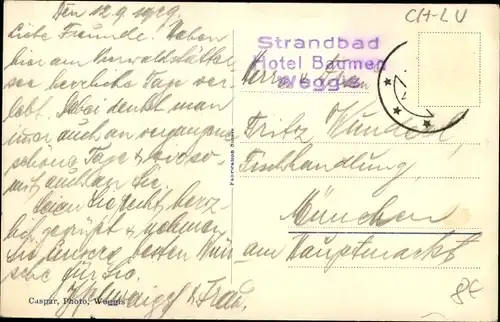 Den 12.9.1929
Liebe Freunde. Haben
hier am Vierwaldstätter
see herrliche Tage ver-
lebt. Dabei denket man
immer auch an vergangene
schöne Tage & wir so-
mit auch an Sie.
Seien Sie recht herz-
lich gegrüßt & nehmen
Sie unsere besten Wün-
sche für Sie.
& Frau.
Caspar, Photo, Weggis
CH-LU
Strandbad
Hotel Baumen
Weggis
Herrn u. Frau
Fritz
Fischhandlung
München
am Hauptmarkt
8€